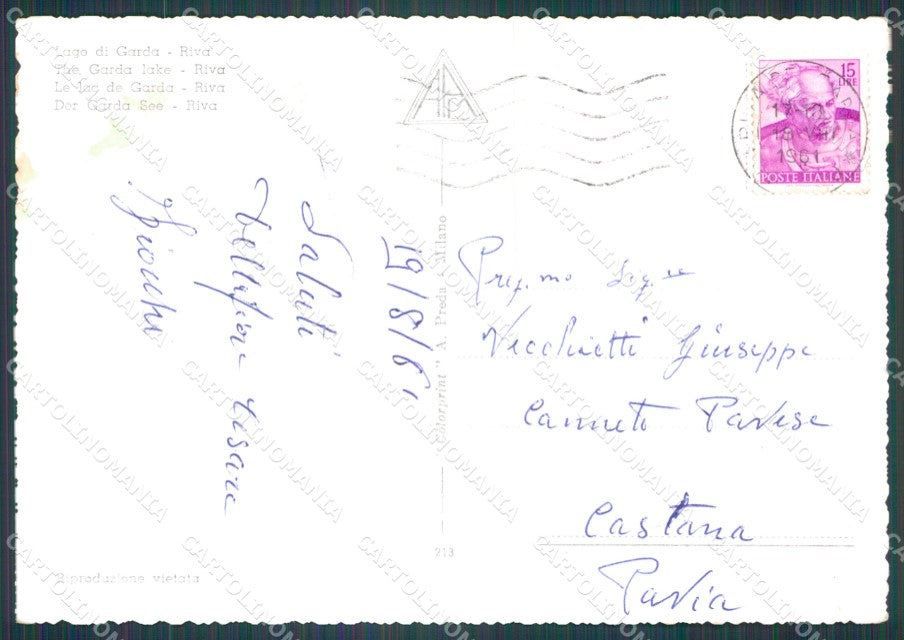 Lago di Garda - Riva
The Garda lake - Riva
Le Lac de Garda - Riva
Der Garda See - Riva
15
LIRE
POSTE ITALIANE
1961
19/8/61
Saluti
Cesare
" A. Preda - Milano
Vecchietti Giuseppe
Canneto Pavese
Castana
Pavia
213
Riproduzione vietata
CARTOLINOMANIA